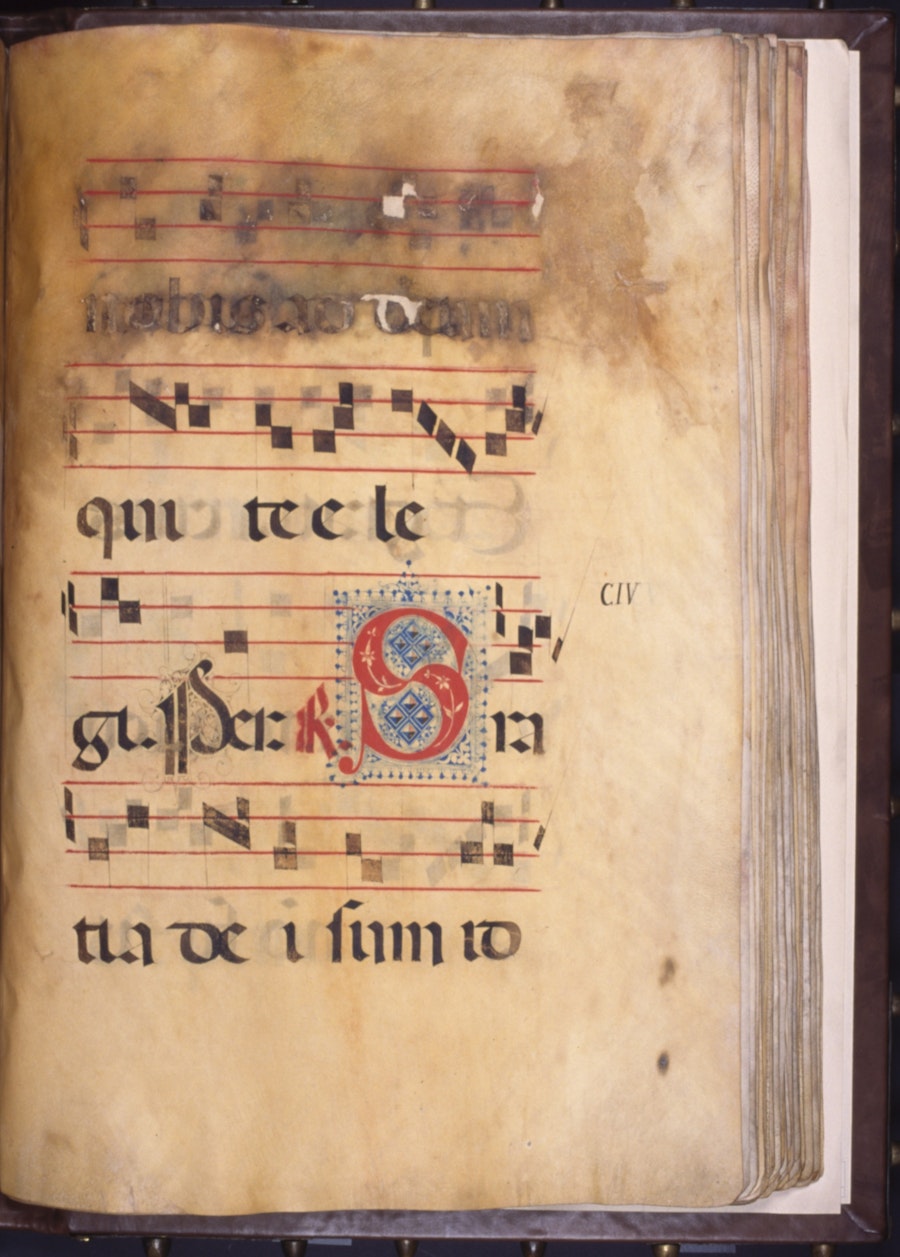 nobis ad
qui te e le
git. Per. R. S ra
tia de i sum id
CIV